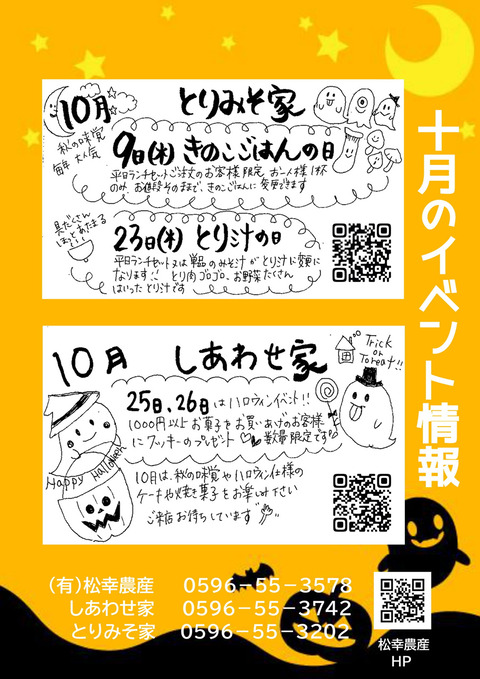 十月のイベント情報
10月 とりみそ家
秋の味覚
毎年大人気
9日(木)きのこごはんの日
平日ランチセットご注文のお客様限定 お一人様1杯
のみ、お値段そのままで、きのこごはんに変更できます
具だくさん
ほっとあたたまる
23日(木)とり汁の日
平日ランチセット又は単品のみそ汁がとり汁に変更に
なります!! とり肉ゴロゴロ、お野菜たくさん
はいったとり汁です
10月 しあわせ家
Trick
or
Toreat!!
25日、26日はハロウィンイベント!!
1000円以上お菓子をお買いあげのお客様
にクッキーのプレゼント♡ 数量限定です
Happy Halloween
10月は、秋の味覚やハロウィン仕様の
ケーキや焼き菓子をお楽しみ下さい
ご来店お待ちしています
(有)松幸農産 0596-55-3578
しあわせ家 0596-55-3742
とりみそ家 0596-55-3202
松幸農産
HP